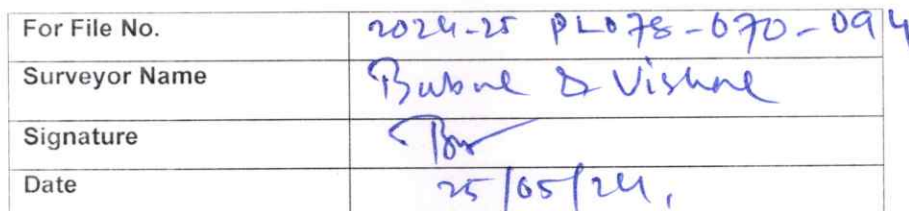 For File No. 2024-25 PL078-070-094
Surveyor Name Babne & Vishne
Signature
Date 25/05/24,